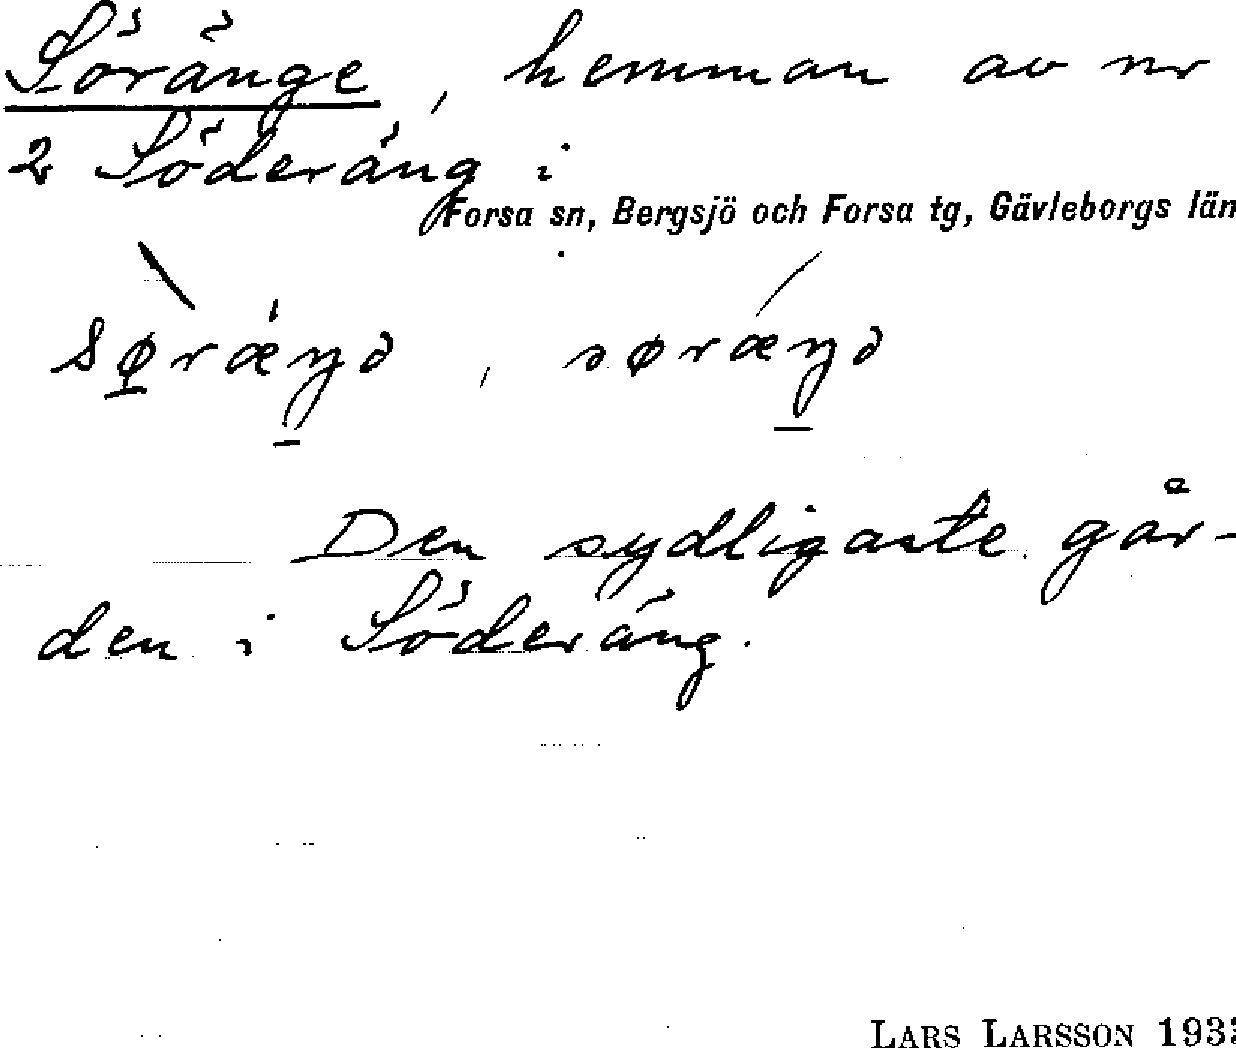 Söränge, hemman av nr
2 Söderäng i
Forsa sn, Bergsjö och Forsa tg, Gävleborgs län
søræŋə, søræŋə
Den sydligaste går-
den i Söderäng.
LARS LARSSON 193